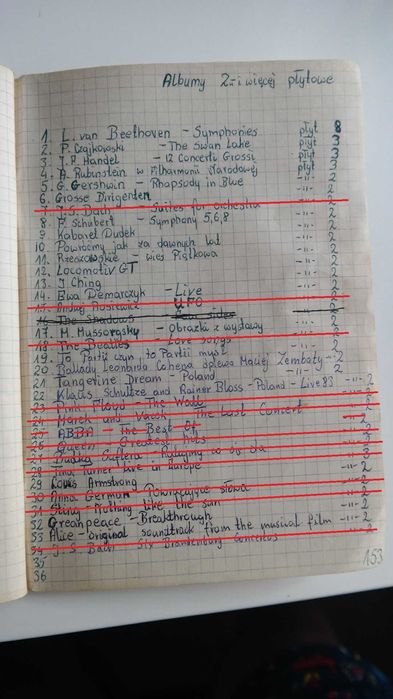 Albumy 2-i więcej płytowe
1. L. van Beethoven - Symphonies płyt 8
2. P. Czajkowski - The Swan Lake płyt 3
3. J. F. Handel - 12 Concerti Grossi płyt 3
4. A. Rubinstein w Filharmonii Narodowej płyt 3
5. G. Gershwin - Rhapsody in Blue -"- 2
6. Grosse Dirigenten -"- 2
7. J.S. Bach - Suites for orchestra -"- 2
8. F. Schubert - Symphony 5,6,8 -"- 2
9. Kabaret Dudek -"- 2
10. Powróćmy jak za dawnych lat -"- 2
11. Rzeszowskie - wieś Piątkowa -"- 2
12. Locomotiv GT -"- 2
13. J Ching -"- 2
14. Ewa Demarczyk - Live -"- 2
15. UFO -"- 2
16. The Shadows
17. M. Mussorgsky - Obrazki z wystawy -"- 2
18. The Beatles - Love songs -"- 2
19. To Partii czyn, to Partii myśl -"- 2
20. Ballady Leonarda Cohena śpiewa Maciej Zembaty -"- 2
21. Tangerine Dream - Poland -"- 2
22. Klaus Schultze and Rainer Bloss - Poland - Live 83 -"- 2
23 Pink Floyd - The Wall -"- 2
24 Marek and Vacek - The Last Concert -"- 2
25 ABBA - The Best Of -"- 2
26 Queen - Greatest hits -"- 2
27 Budka Suflera -"- 3
28 Tina Turner live in Europe -"- 2
29 Louis Armstrong -"- 2
30 Anna German - Powracające słowa -"- 2
31 Sting - Nothing like the sun -"- 2
32 Greenpeace - Breakthrough -"- 2
33 Alice - original soundtrack from the musical film -"- 2
34 J. S. Bach - Six Brandenburg Concertos -"- 2
35
36
153